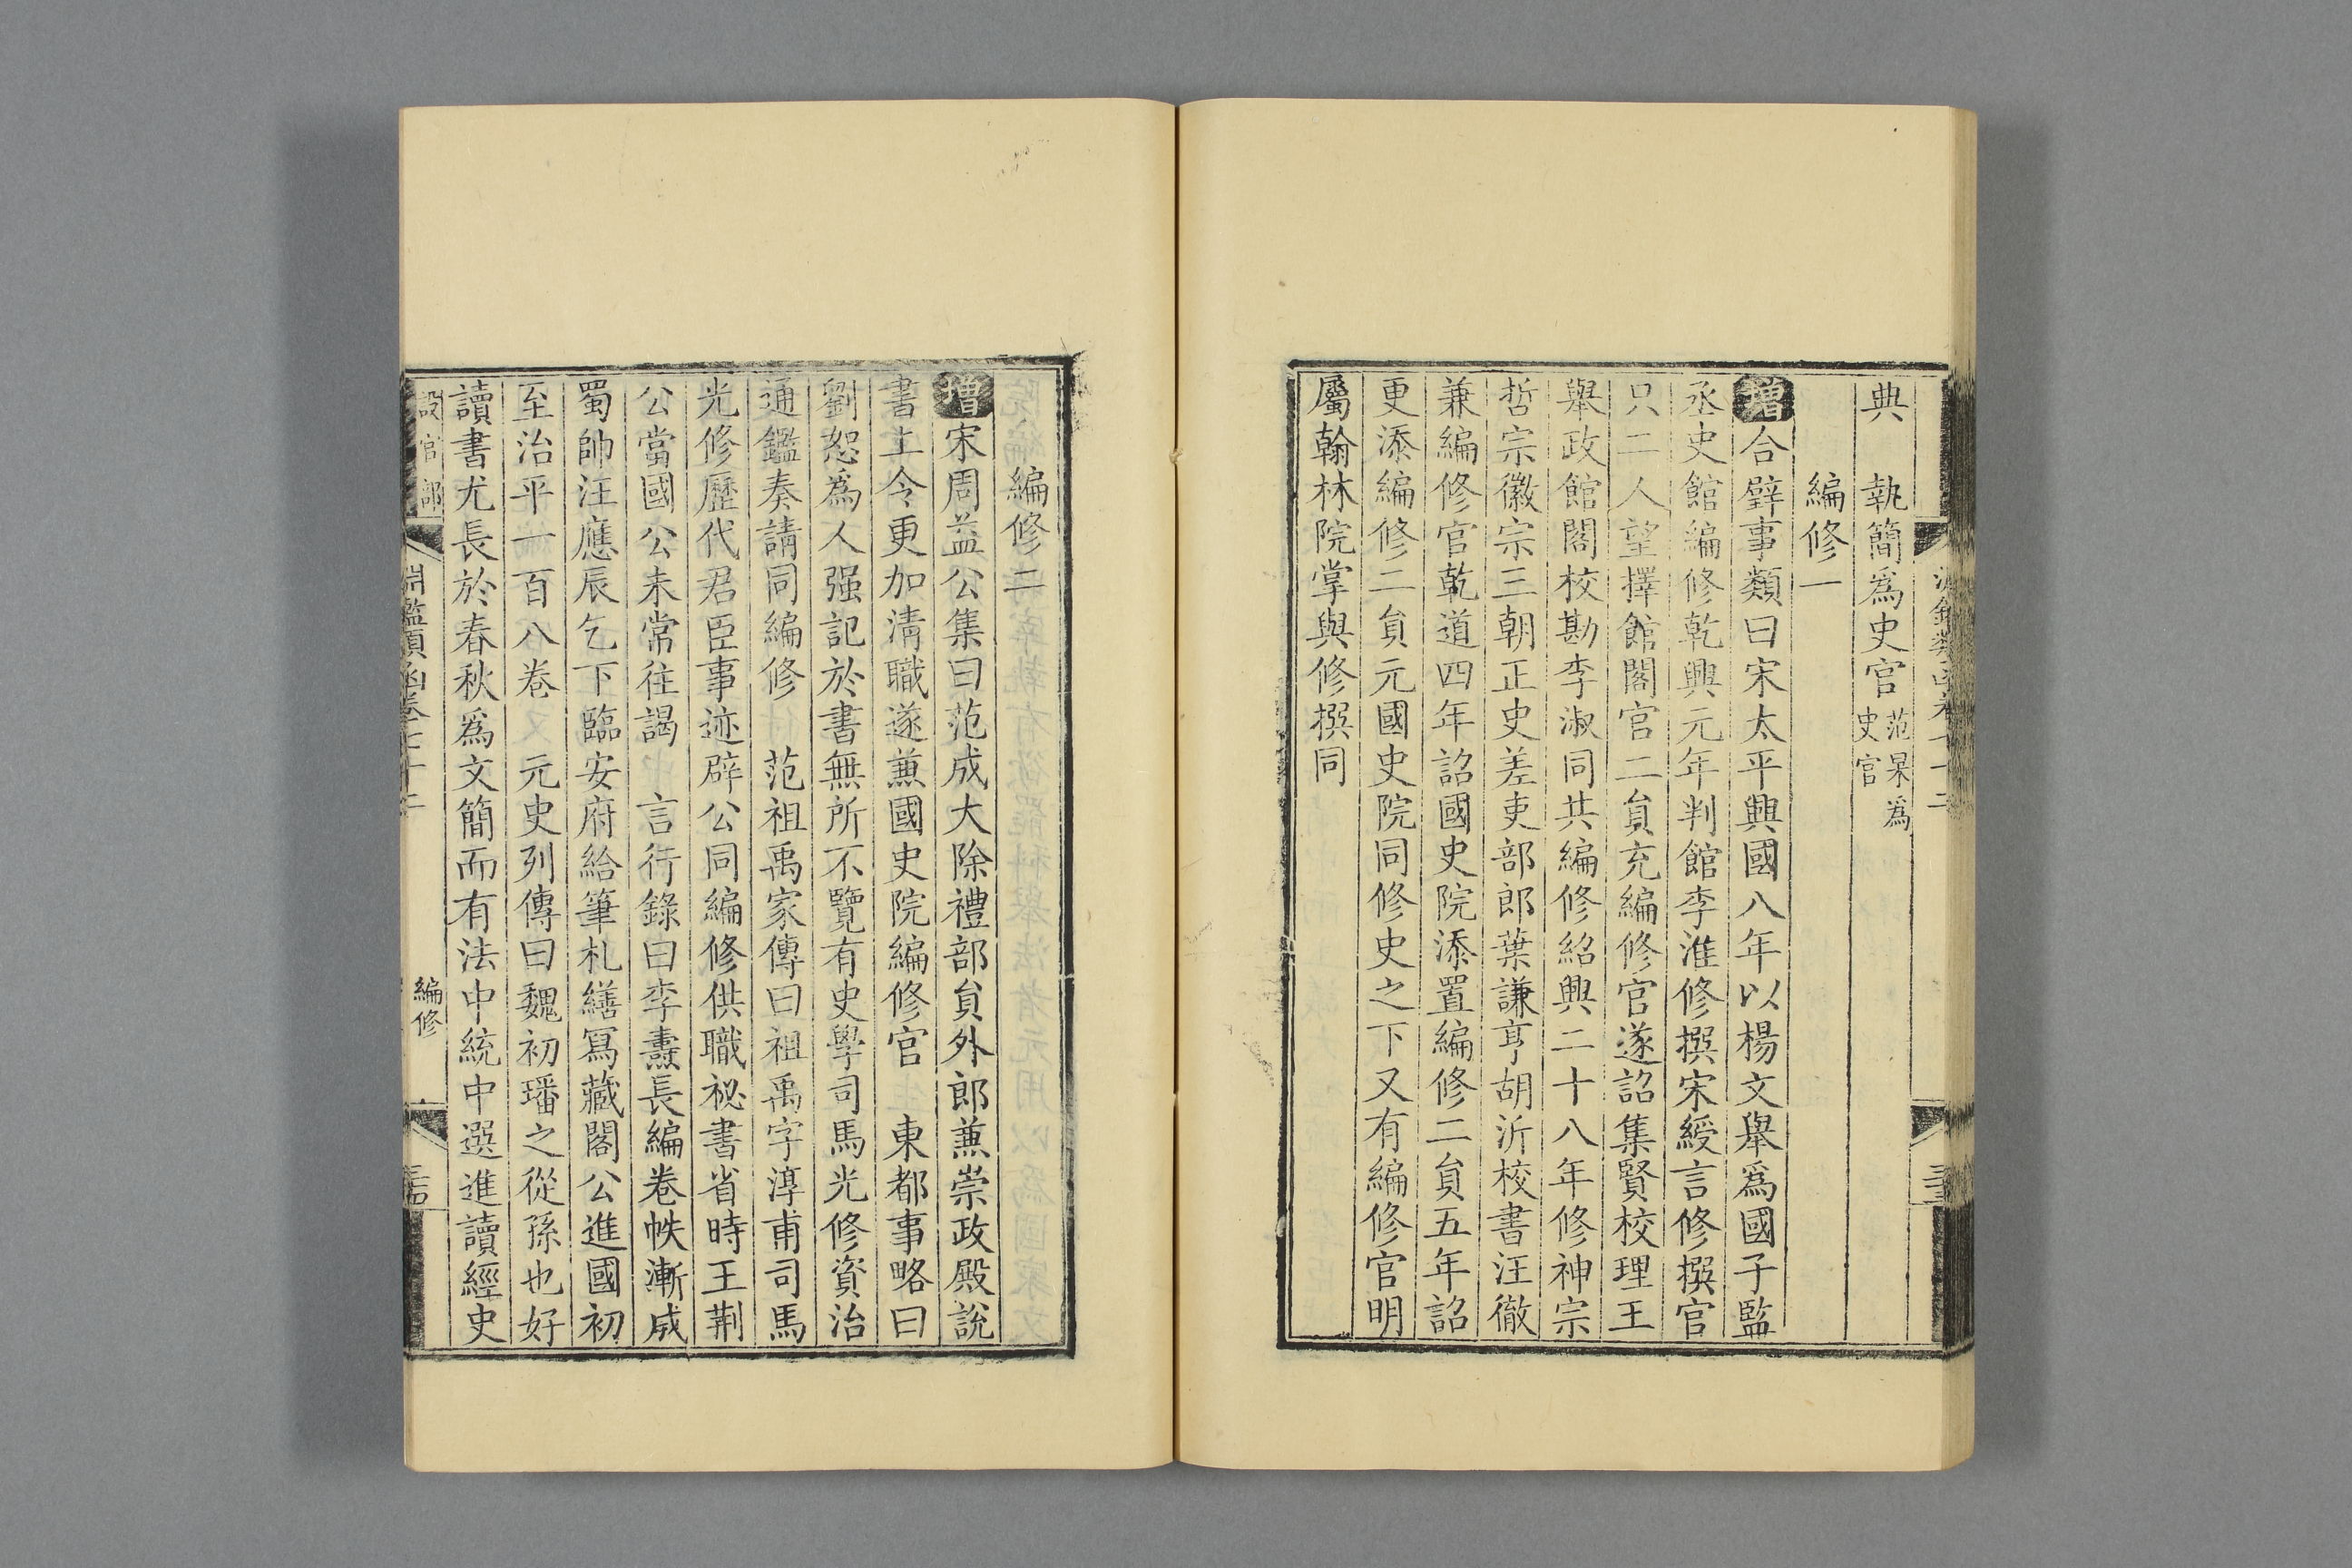 典 執簡爲史官 范杲爲
史官
編修一
增合璧事類曰宋太平興國八年以楊文舉爲國子監
丞史館編修乾興元年判館李淮修撰宋綬言修撰官
只二人望擇館閣官二負充編修官遂詔集賢校理王
舉政館閣校勘李淑同共編修紹興二十八年修神宗
哲宗徽宗三朝正史差吏部郎葉謙亨胡沂校書汪徹
兼編修官乾道四年詔國史院添置編修二負五年詔
更添編修二負元國史院同修史之下又有編修官明
屬翰林院掌與修撰同
編修二
增宋周益公集曰范成大除禮部負外郎蒹崇政殿說
書上令更加清職遂蒹國史院編修官 東都事略曰
劉恕爲人强記於書無所不覽有史學司馬光修資治
通鑑奏請同編修 范祖禹家傳曰祖禹字淳甫司馬
光修歷代君臣事迹辟公同編修供職祕書省時王荆
公當國公未常往謁 言行錄曰李燾長編卷帙漸成
蜀帥汪應辰乞下臨安府給筆札繕寫藏閣公進國初
至治平一百八卷 元史列傳曰魏初璠之從孫也好
讀書尤長於春秋爲文簡而有法中統中選進讀經史
設官部 淵鑑類函卷七十二 編修